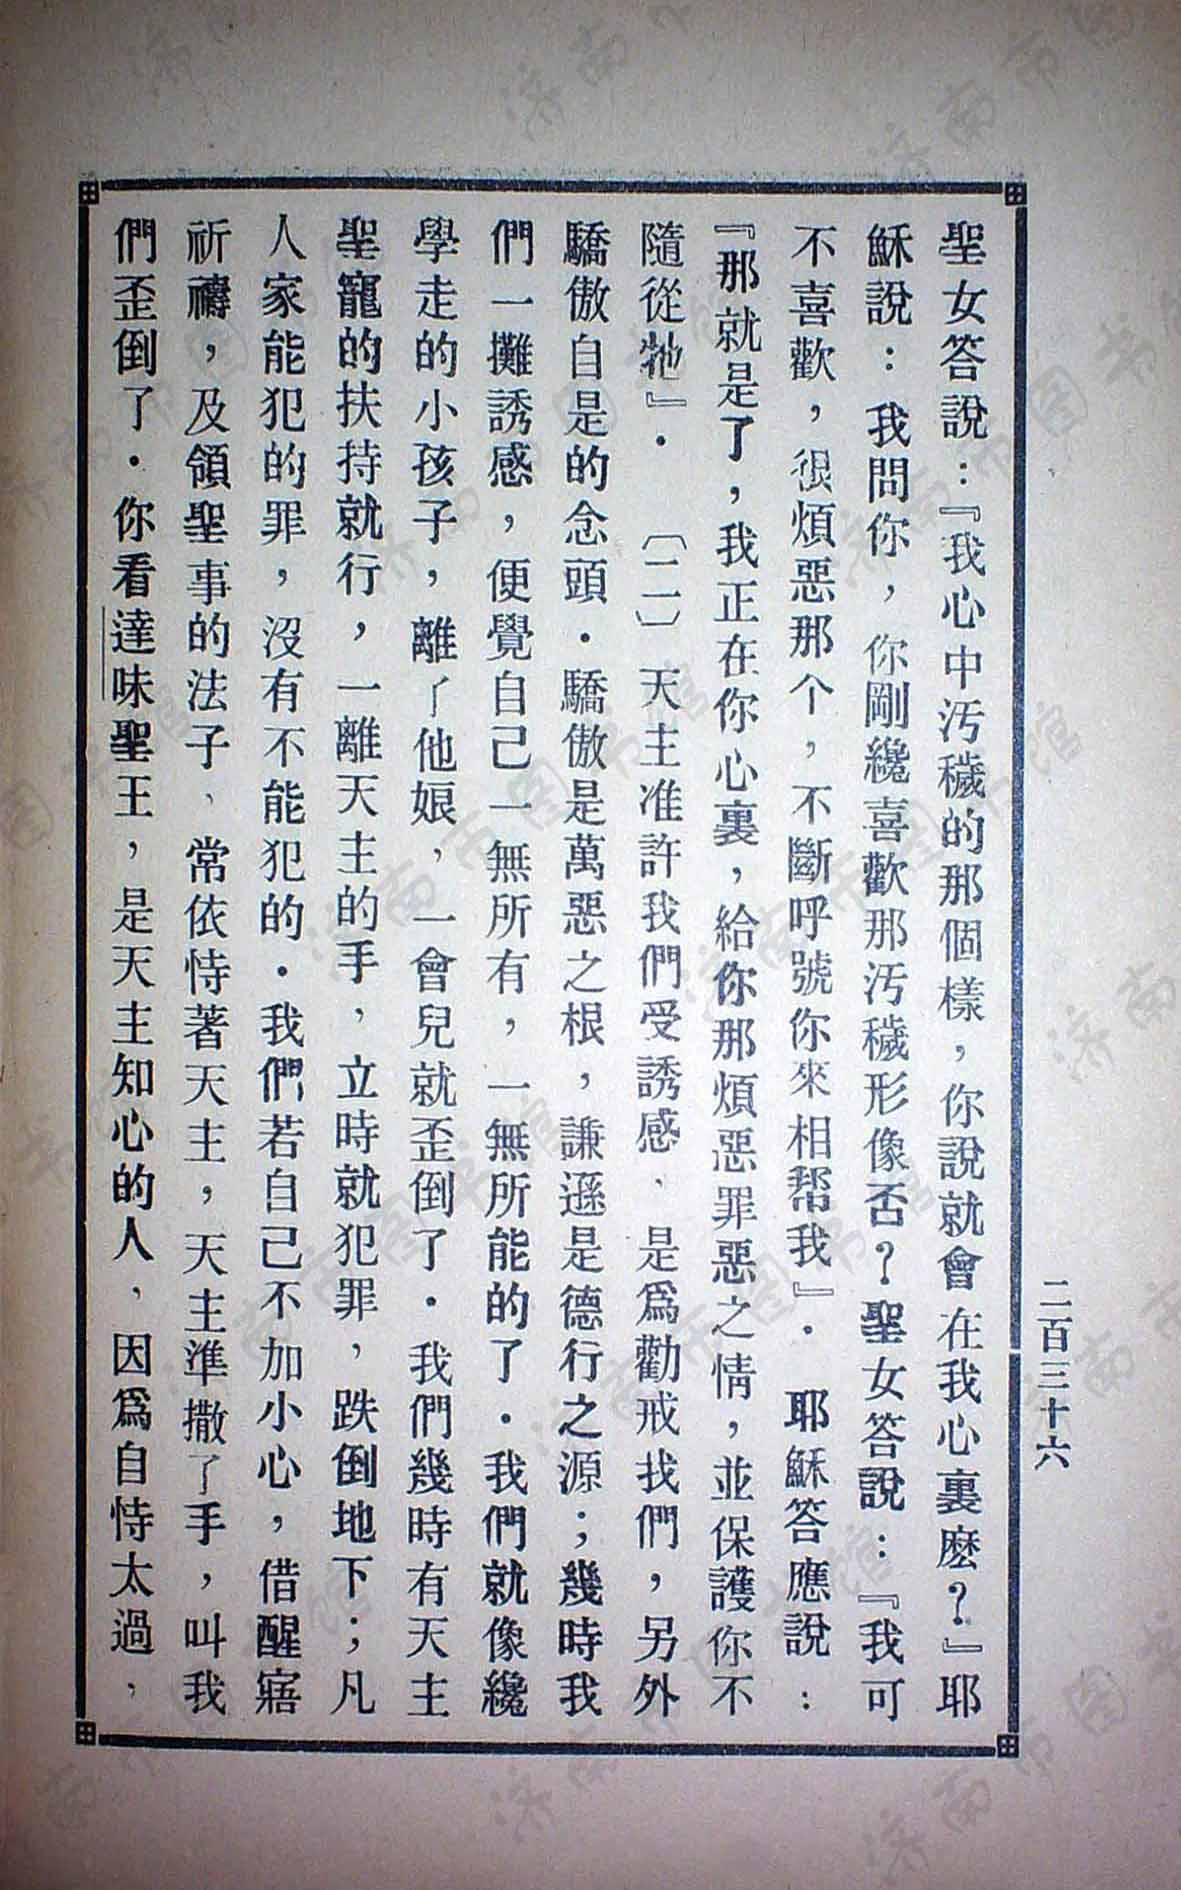 二百三十六
聖女答說：『我心中汚穢的那個樣，你說就會在我心裏麽？』耶
穌說：我問你，你剛纔喜歡那汚穢形像否？聖女答說：『我可
不喜歡，很煩惡那个，不斷呼號你來相幫我』．　耶穌答應說：
『那就是了，我正在你心裏，給你那煩惡罪惡之情，並保護你不
隨從牠』．　〔二〕天主准許我們受誘感、是爲勸戒找們，另外
驕傲自是的念頭．驕傲是萬惡之根，謙遜是德行之源；幾時我
們一攤誘感，便覺自己一無所有，一無所能的了．我們就像纔
學走的小孩子，離了他娘，一會兒就歪倒了．我們幾時有天主
聖寵的扶持就行，一離天主的手，立時就犯罪，跌倒地下；凡
人家能犯的罪，沒有不能犯的．我們若自己不加小心，借醒寤
祈禱，及領聖事的法子、常依恃著天主，天主準撒了手，叫我
們歪倒了．你看達味聖王，是天主知心的人，因爲自恃太過，
济南市图书馆